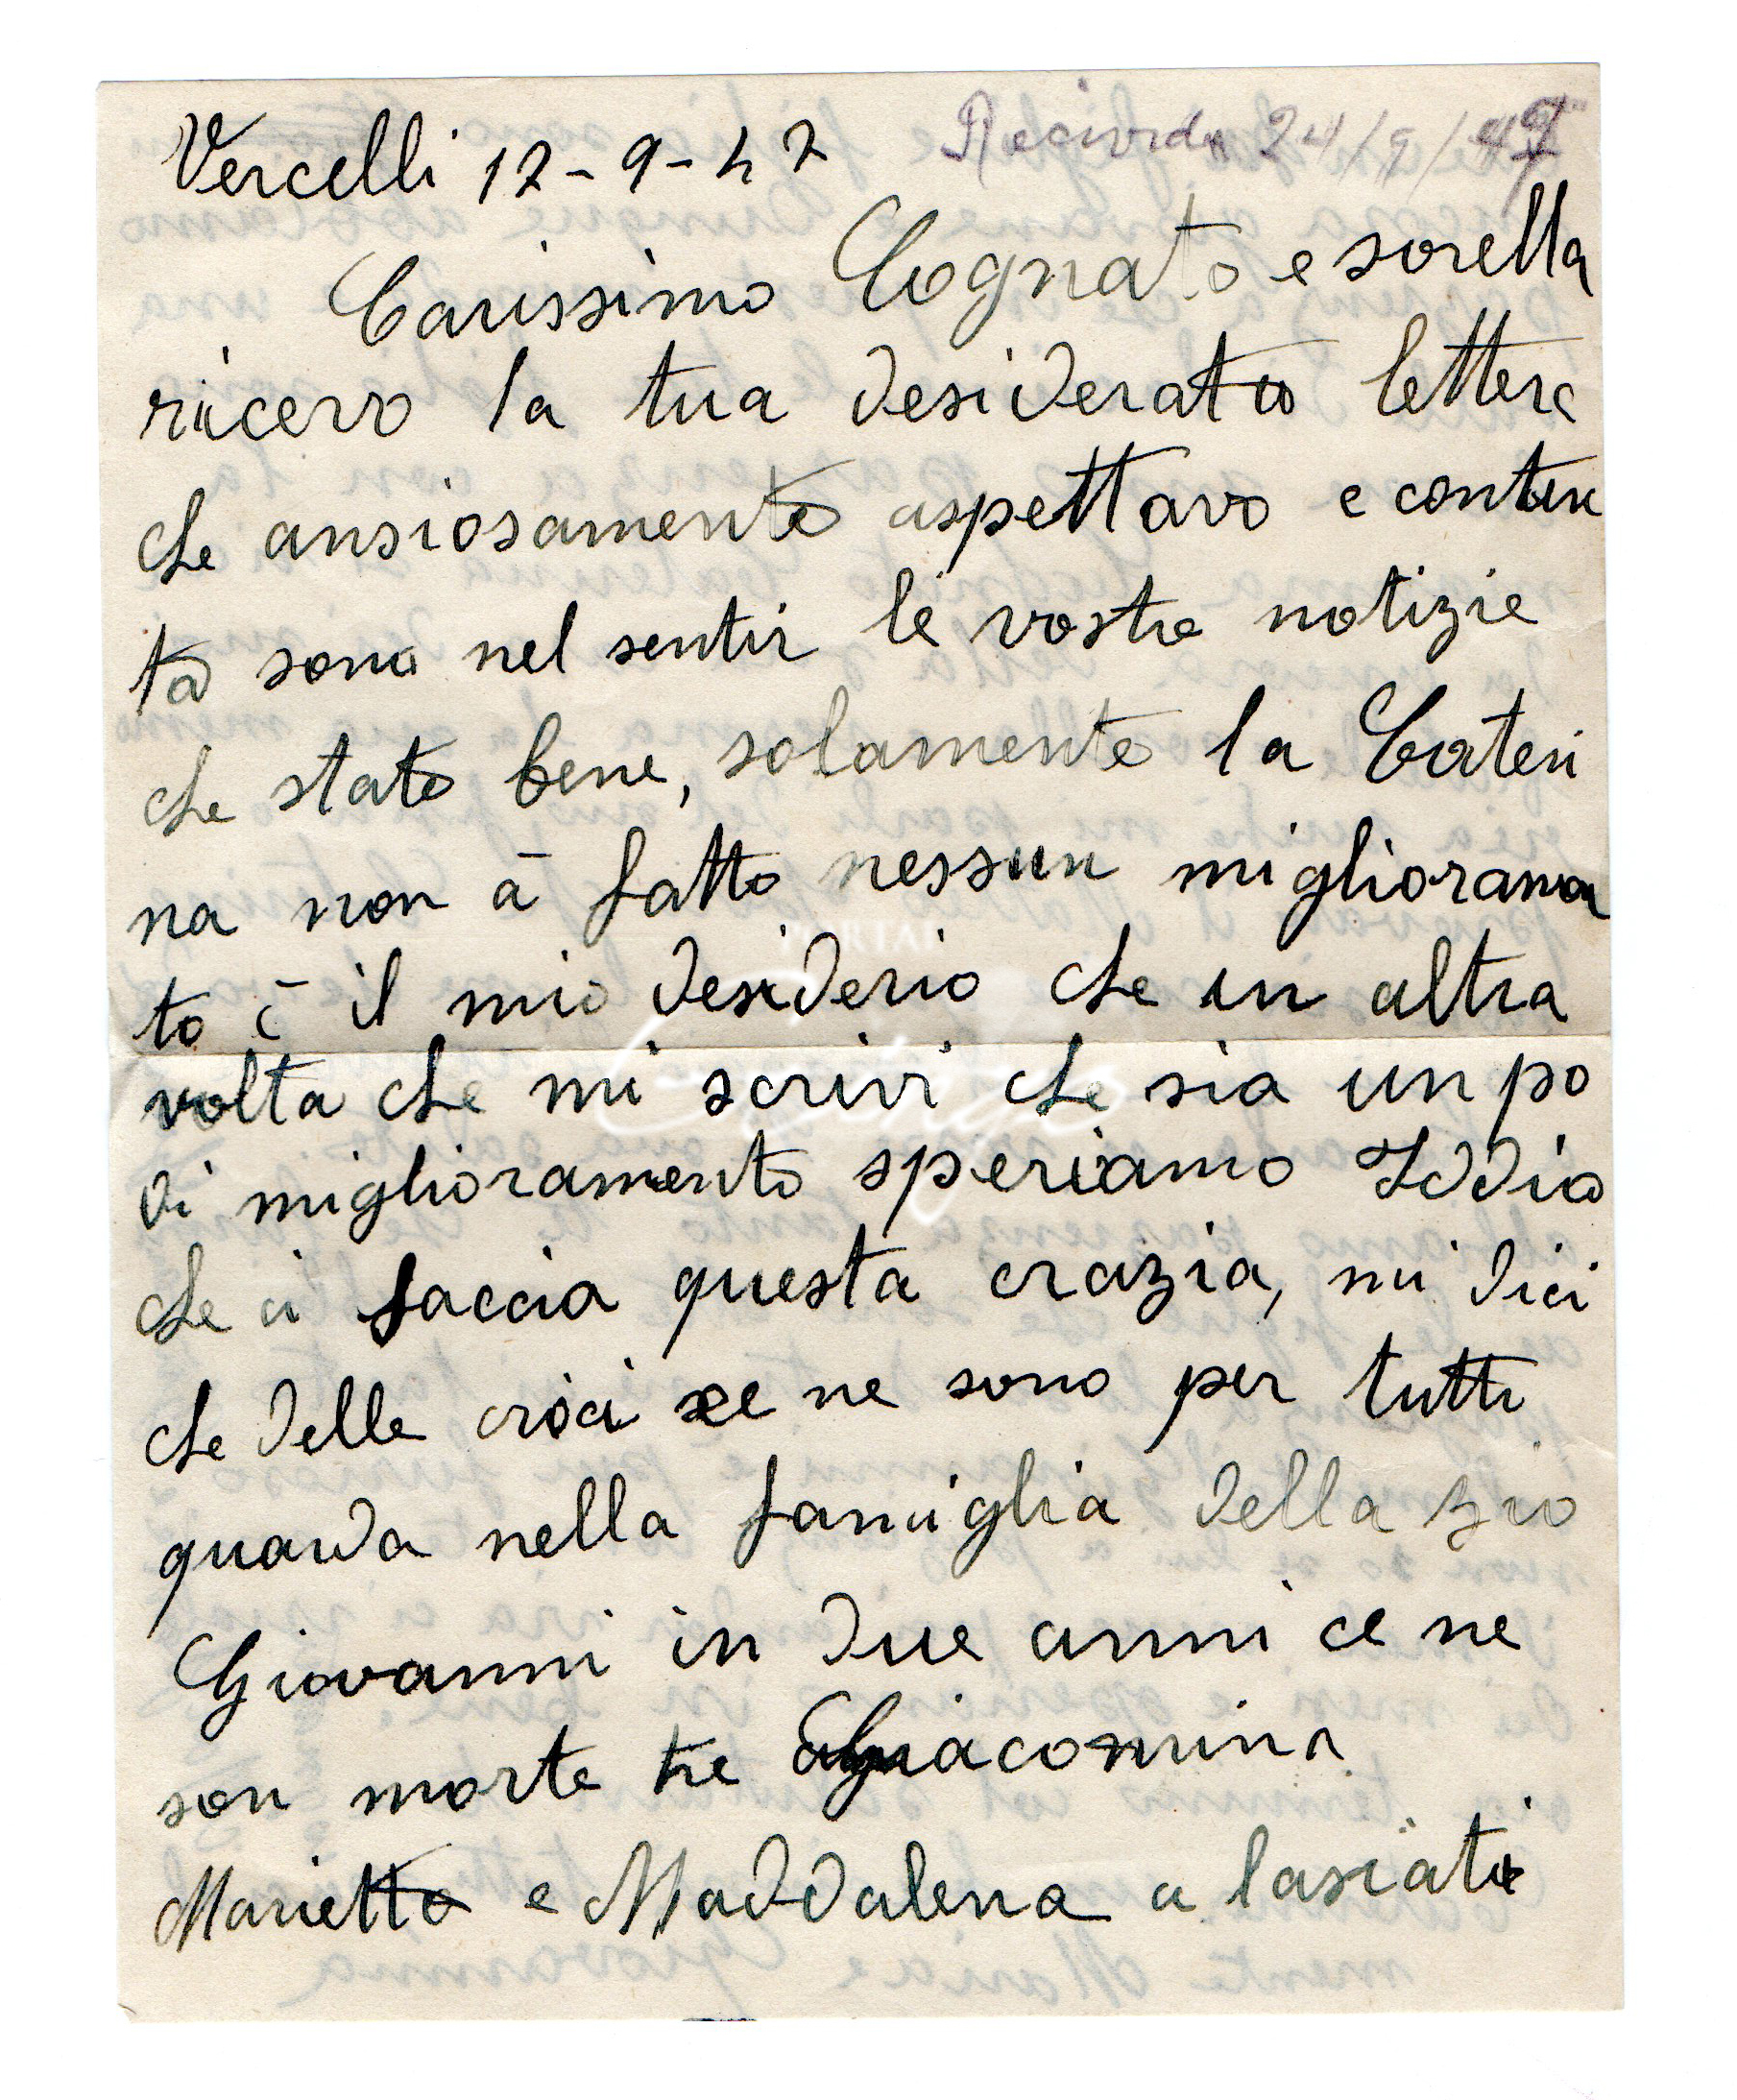 Vercelli 12-9-47
Recivida 24/9/47
Carissimo Cognato e sorella
ricevo la tua desiderata lettera
che ansiosamente aspettavo e conten
ta sono nel sentir le vostre notizie
che state bene, solamente la Cateri
na non à fatto nessun miglioramen
to è il mio desiderio che un altra
volta che mi scrivi che sia un po
di miglioramento speriamo Iddio
che ci faccia questa crazia, mi dici
che delle croci ce ne sono per tutti
guarda nella famiglia della zio
Giovanni in due anni ce ne
son morte tre Giacomina
Marietta e Maddalena a lasiati
PORTAL